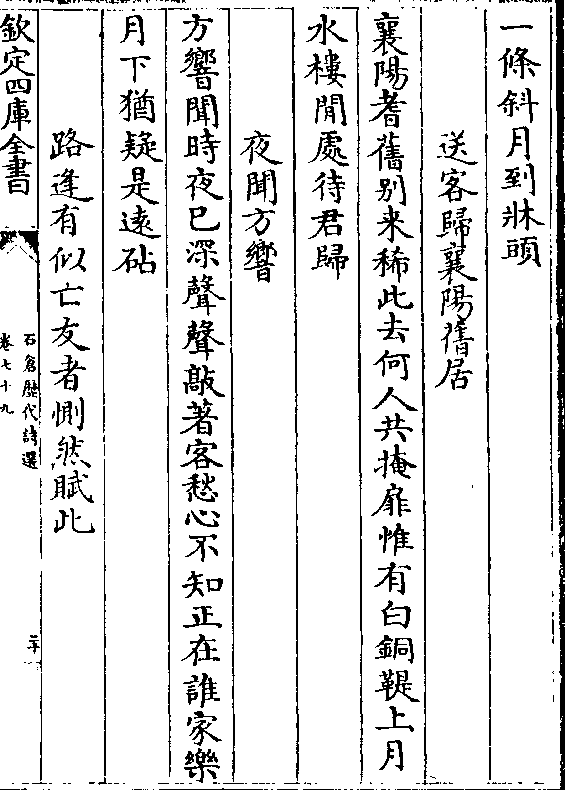 一條斜月到牀頭
送客歸襄陽舊居
襄陽耆舊别来稀此去何人共掩扉惟有白銅鞮上月
水樓閒處待君歸
夜聞方響
方響聞時夜已深聲聲敲著客愁心不知正在誰家樂
月下猶疑是遠砧
路逢有似亡友者惻然賦此
欽定四庫全書
石倉歴代詩選
卷七十九
二十